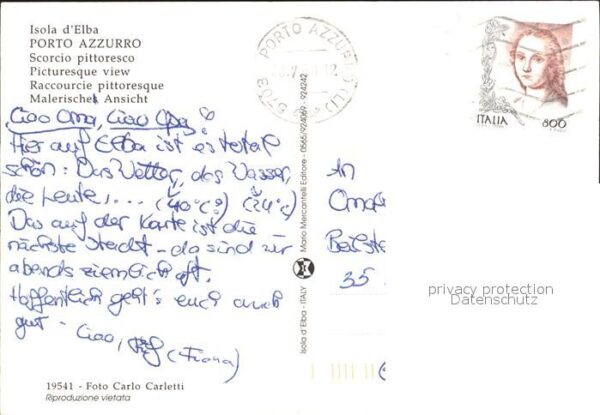 Isola d'Elba
PORTO AZZURRO
Scorcio pittoresco
Picturesque view
Raccourcie pittoresque
Malerischer Ansicht
Ciao Oma, Ciao Opa!
Hier auf Elba ist es total
schön: Das Wetter, das Wasser,
die Leute,... (40°C?) (24°C)
Das auf der Karte ist die
nächste Stadt - da sind wir
abends ziemlich oft.
Hoffentlich geht's euch auch
gut - Ciao, (Fiona)
19541 - Foto Carlo Carletti
Riproduzione vietata
Isola d'Elba - ITALY Mario Mercantelli Editore - 0565/924069 - 924242
PORTO AZZURRO (LI)
ITALIA 800
An
Oma
35
privacy protection
Datenschutz